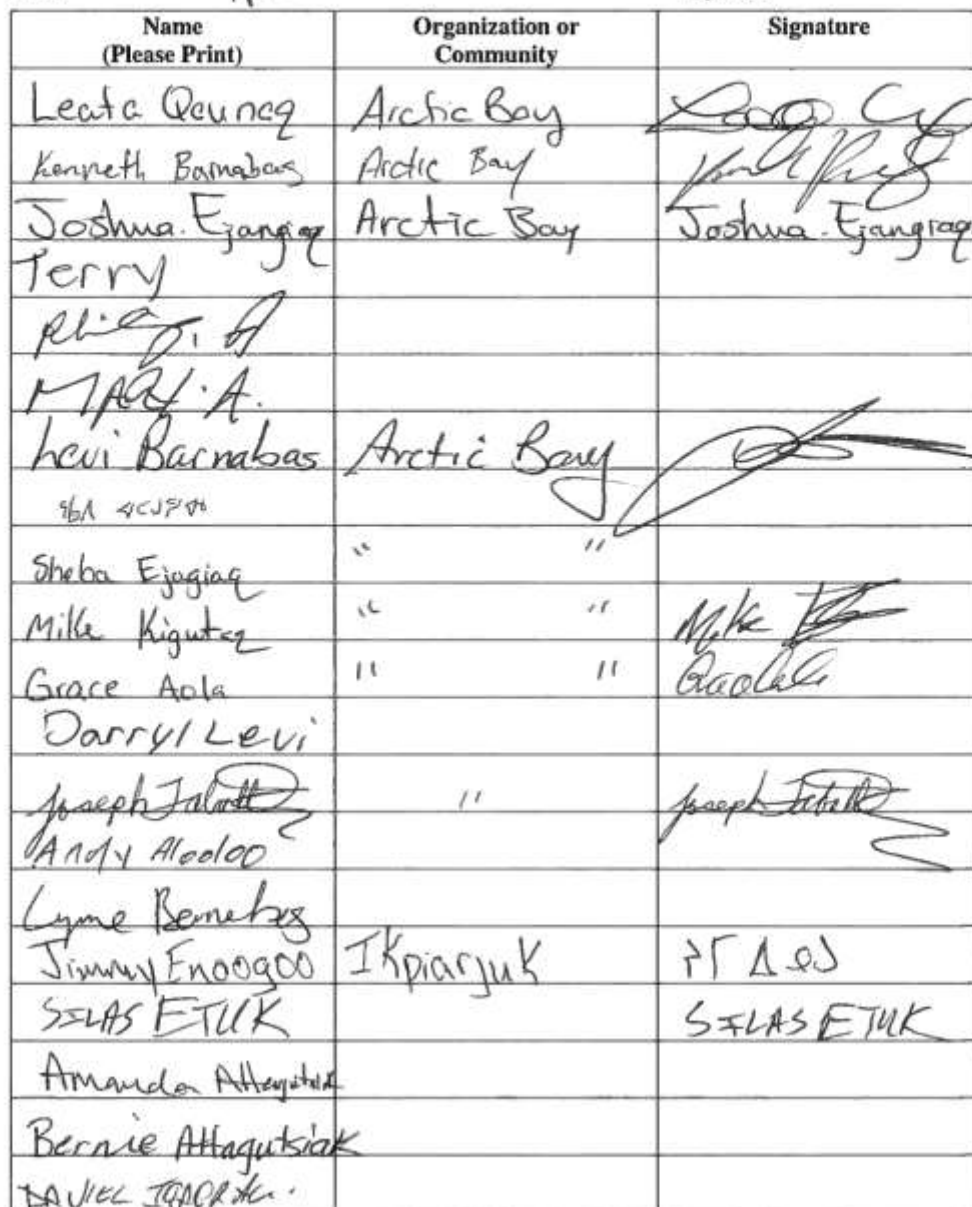 Name Organization or Signature
(Please Print) Community
Leata Qaunaq Arctic Bay
Kenneth Barnabas Arctic Bay
Joshua. Ejangiaq Arctic Bay Joshua. Ejangiaq
Terry
MARY. A.
Levi Barnabas Arctic Bay
Sheba Ejagiaq " "
Mike Kigutaq " " Mike
Grace Aola " "
Darryl Levi
Joseph " Joseph
Andy Alooloo
Jimmy Enoogoo Ikpiarjuk ᔨᒥ ᐃᓄᒍ
SILAS ETUK SILAS ETUK
Amanda Attagutsiak
Bernie Attagutsiak
DANIEL